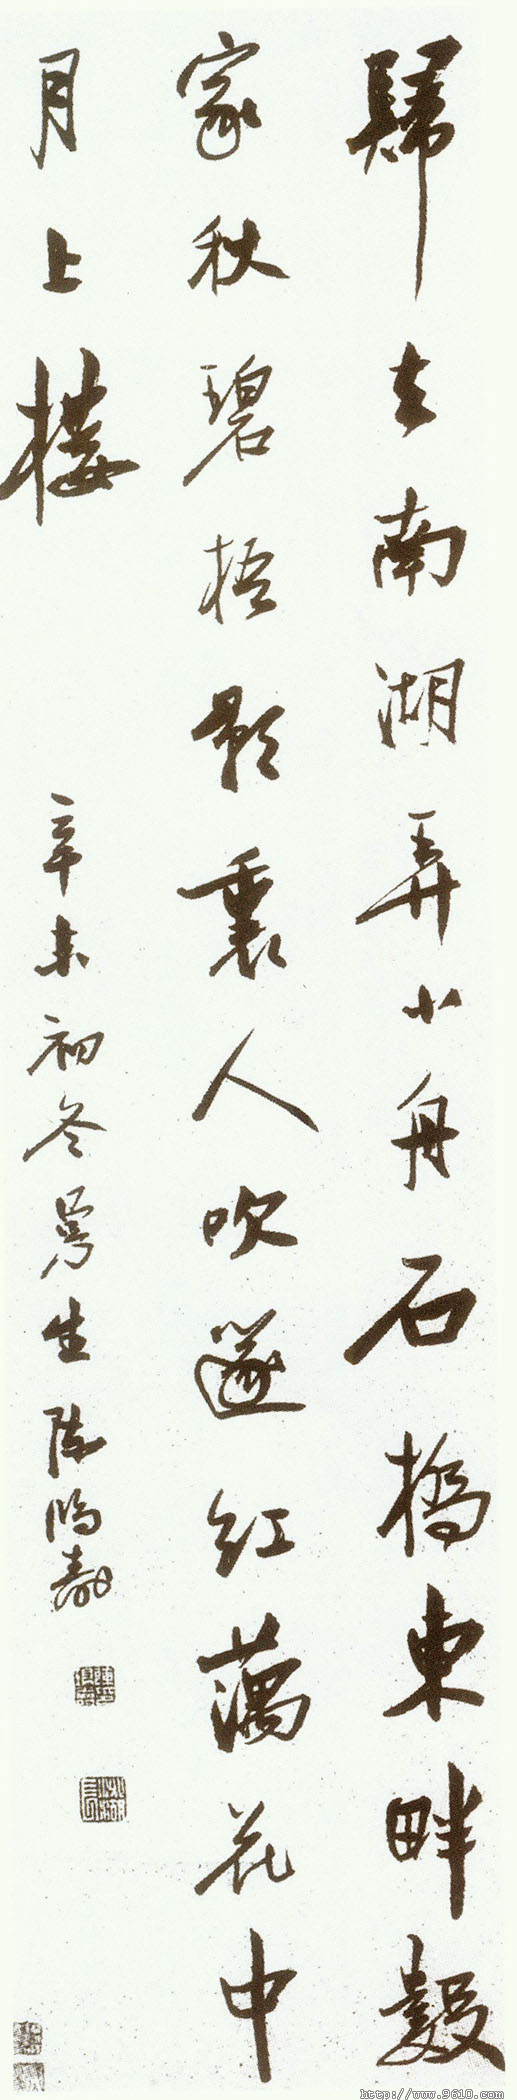 歸去南湖弄小舟石橋東畔數
家秋碧梧影裏人吹邃紅藕花中
月上樓
辛未初冬曼生陳鴻壽
http://www.9610.com